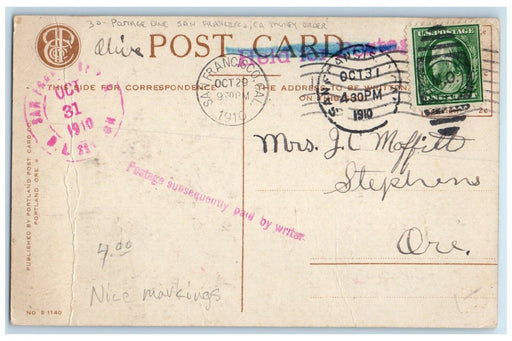 30- POSTAGE DUE SAN FRANCISCO, CA
Olive
POST CARD
THIS SIDE FOR CORRESPONDENCE
THE ADDRESS TO BE WRITTEN ON
SAN FRANCISCO, CAL.
OCT 29
9 30 PM
1910
OCT 31
4 30 PM
1910
U.S. POSTAGE
OCT
31
1910
Mrs. J. C. Moffitt
Stephens
Ore.
Postage subsequently paid by writer.
4.00
Nice markings
PUBLISHED BY PORTLAND POST CARD CO.
PORTLAND, ORE.
NO S 1140